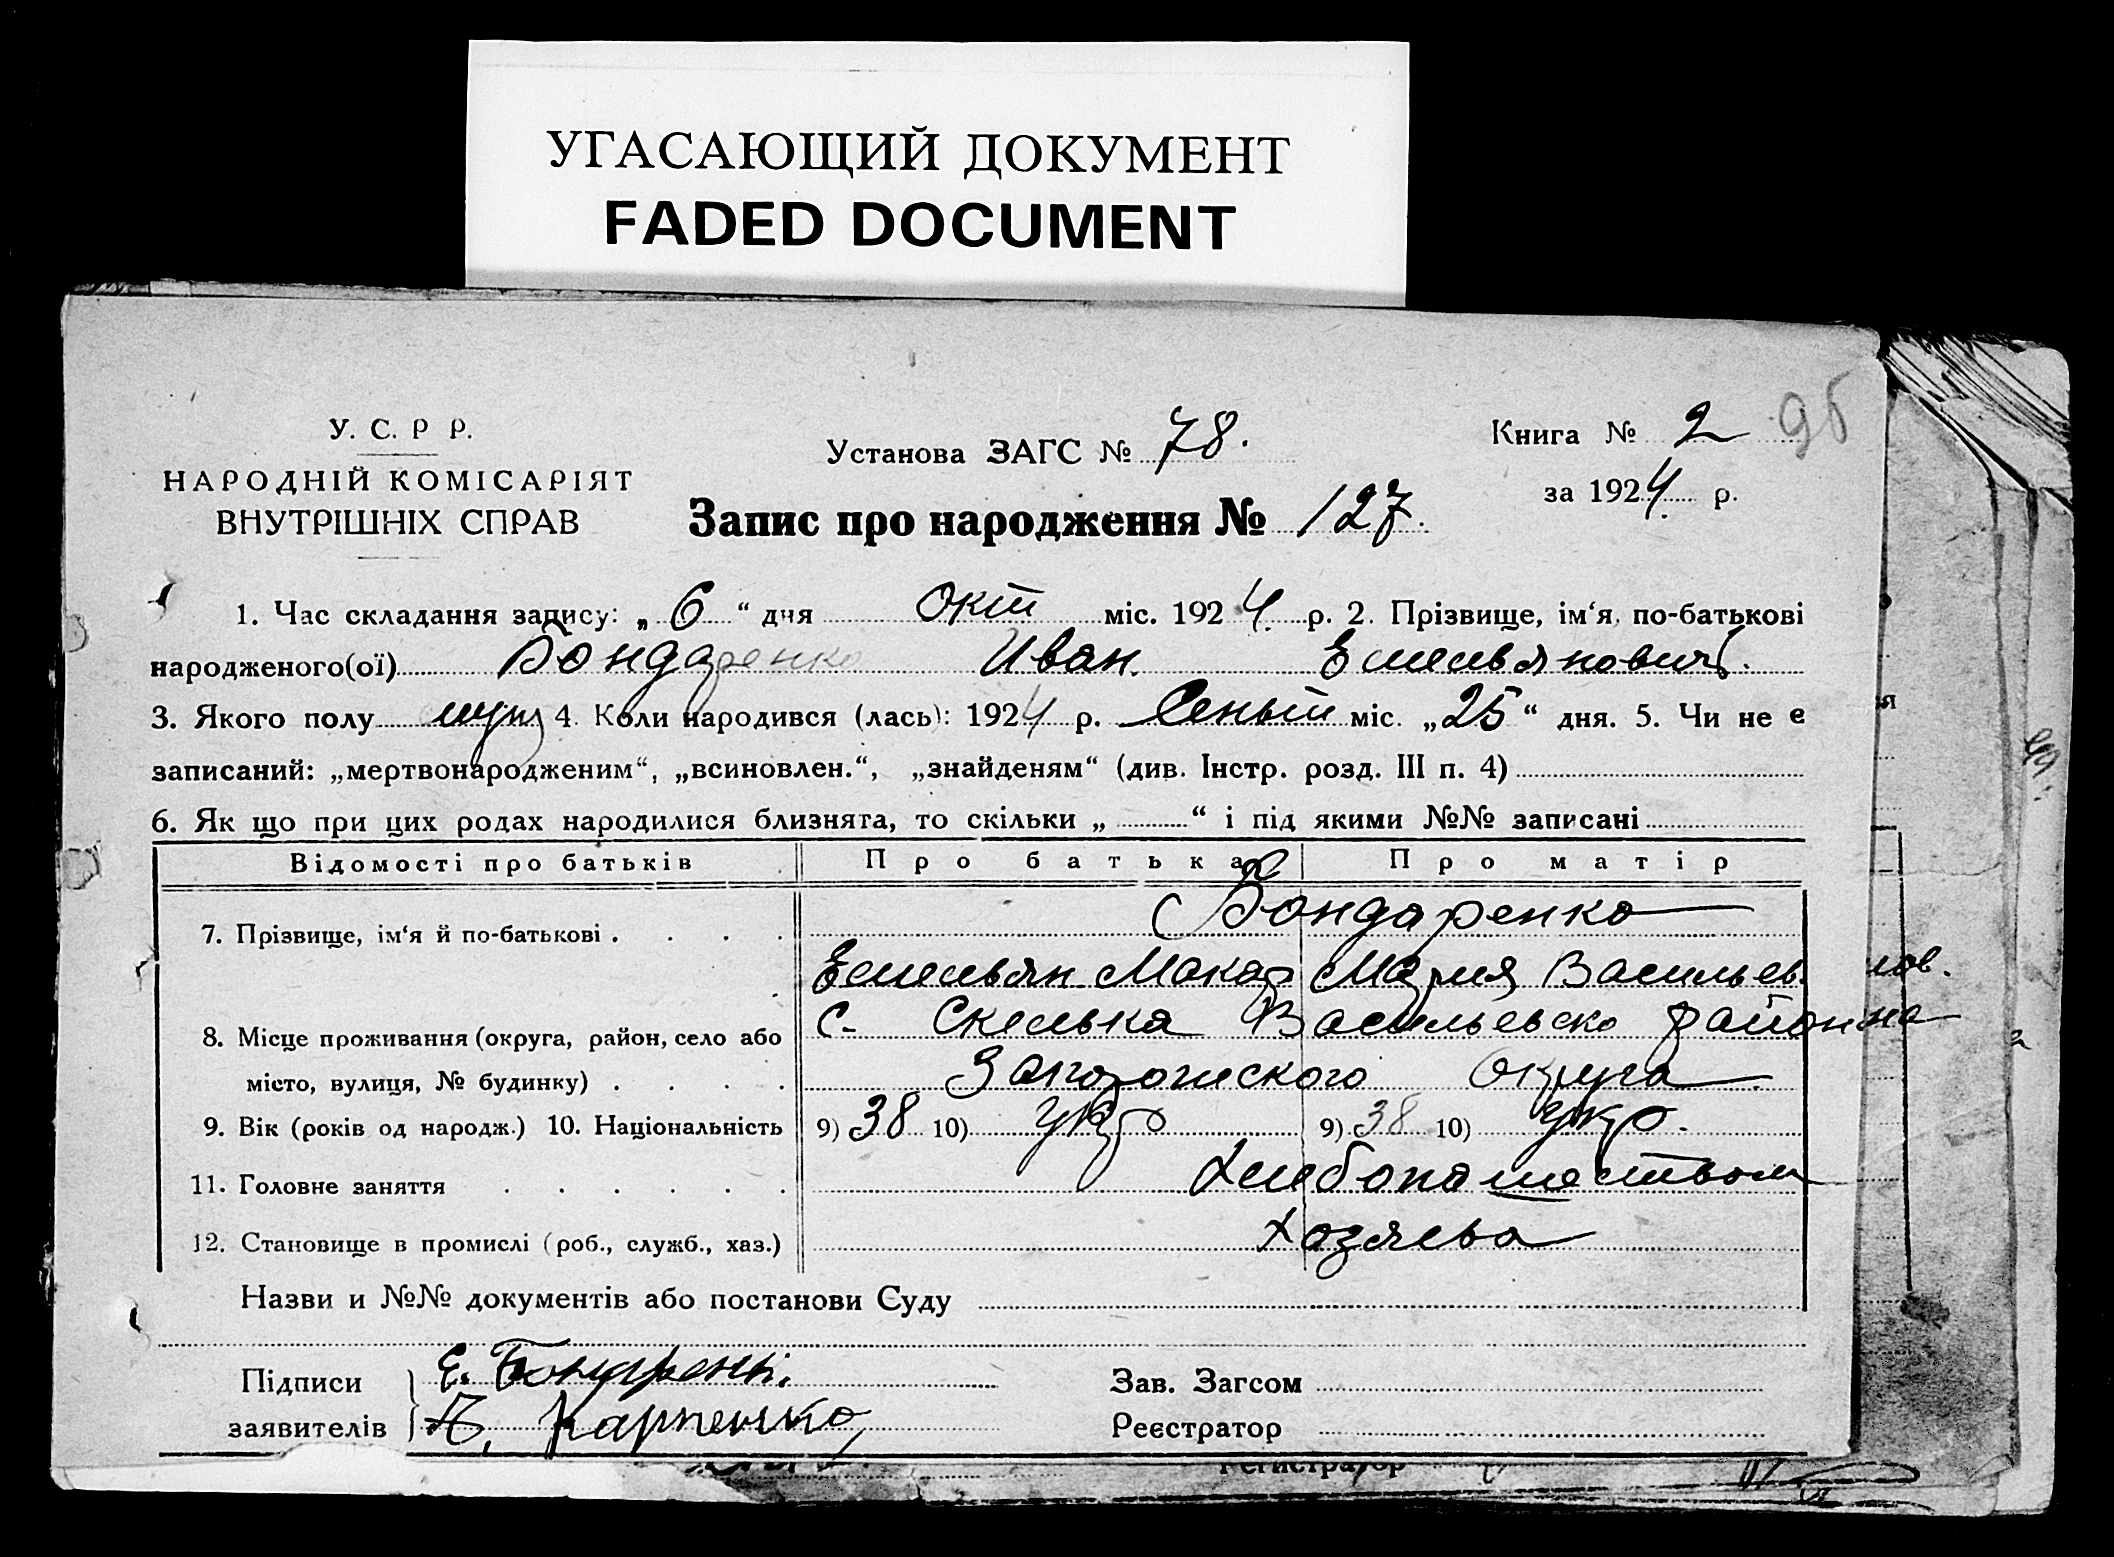 УГАСАЮЩИЙ ДОКУМЕНТ
FADED DOCUMENT
У. С. Р Р.
НАРОДНІЙ КОМІСАРІЯТ
ВНУТРІШНІХ СПРАВ
Установа ЗАГС № 78.
Книга № 2 96
за 1924 р.
Запис про народження № 127.
1. Час складання запису: „ 6 “ дня Окт міс. 1924 р. 2. Прізвище, ім‘я, по-батькові
народженого(ої) Бондаренко Иван. Емельянович.
3. Якого полу муж 4. Коли народився (лась): 1924 р. Сеньт міс. „25“ дня. 5. Чи не є
записаний: „мертвонародженим“, „всиновлен.“, „знайденям“ (див. Інстр. розд. III п. 4)
6. Як що при цих родах народилися близнята, то скільки „ “ і під якими №№ записані
Відомості про батьків Про батька Про матір
7. Прізвище, ім‘я й по-батькові . . . . Бондаренко
Емельян Макар Мария Васильев.
8. Місце проживання (округа, район, село або с. Скелька Васильевско района
місто, вулиця, № будинку) . . . . Запорожского Округа
9. Вік (років од народж.) 10. Національність 9) 38 10) укр 9) 38 10) укр.
11. Головне заняття . . . . . . Хлебопашеством
12. Становище в промислі (роб., служб., хаз.) Хозяева
Назви и №№ документів або постанови Суду
Підписи Е. Бондаренк. Зав. Загсом
заявителів Карпенко, Реєстратор
Регистратор